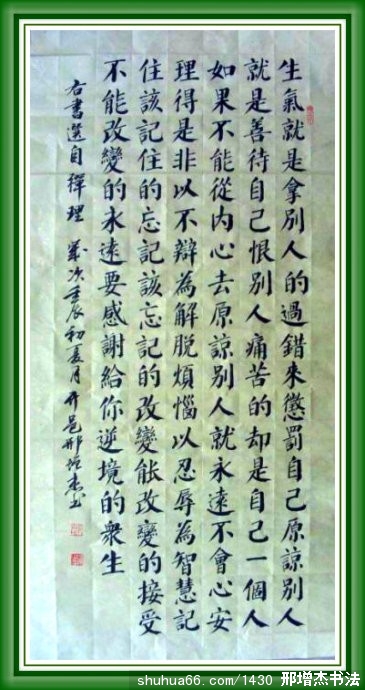 生氣就是拿別人的過錯來懲罰自己原諒別人
就是善待自己恨別人痛苦的却是自己一個人
如果不能從內心去原諒別人就永遠不會心安
理得是非以不辯為解脫煩惱以忍辱為智慧記
住該記住的忘記該忘記的改變能改變的接受
不能改變的永遠要感謝給你逆境的衆生
右書選自禪理 歲次壬辰初夏月 邢增杰书
shuhua66.com/1430 邢增杰书法